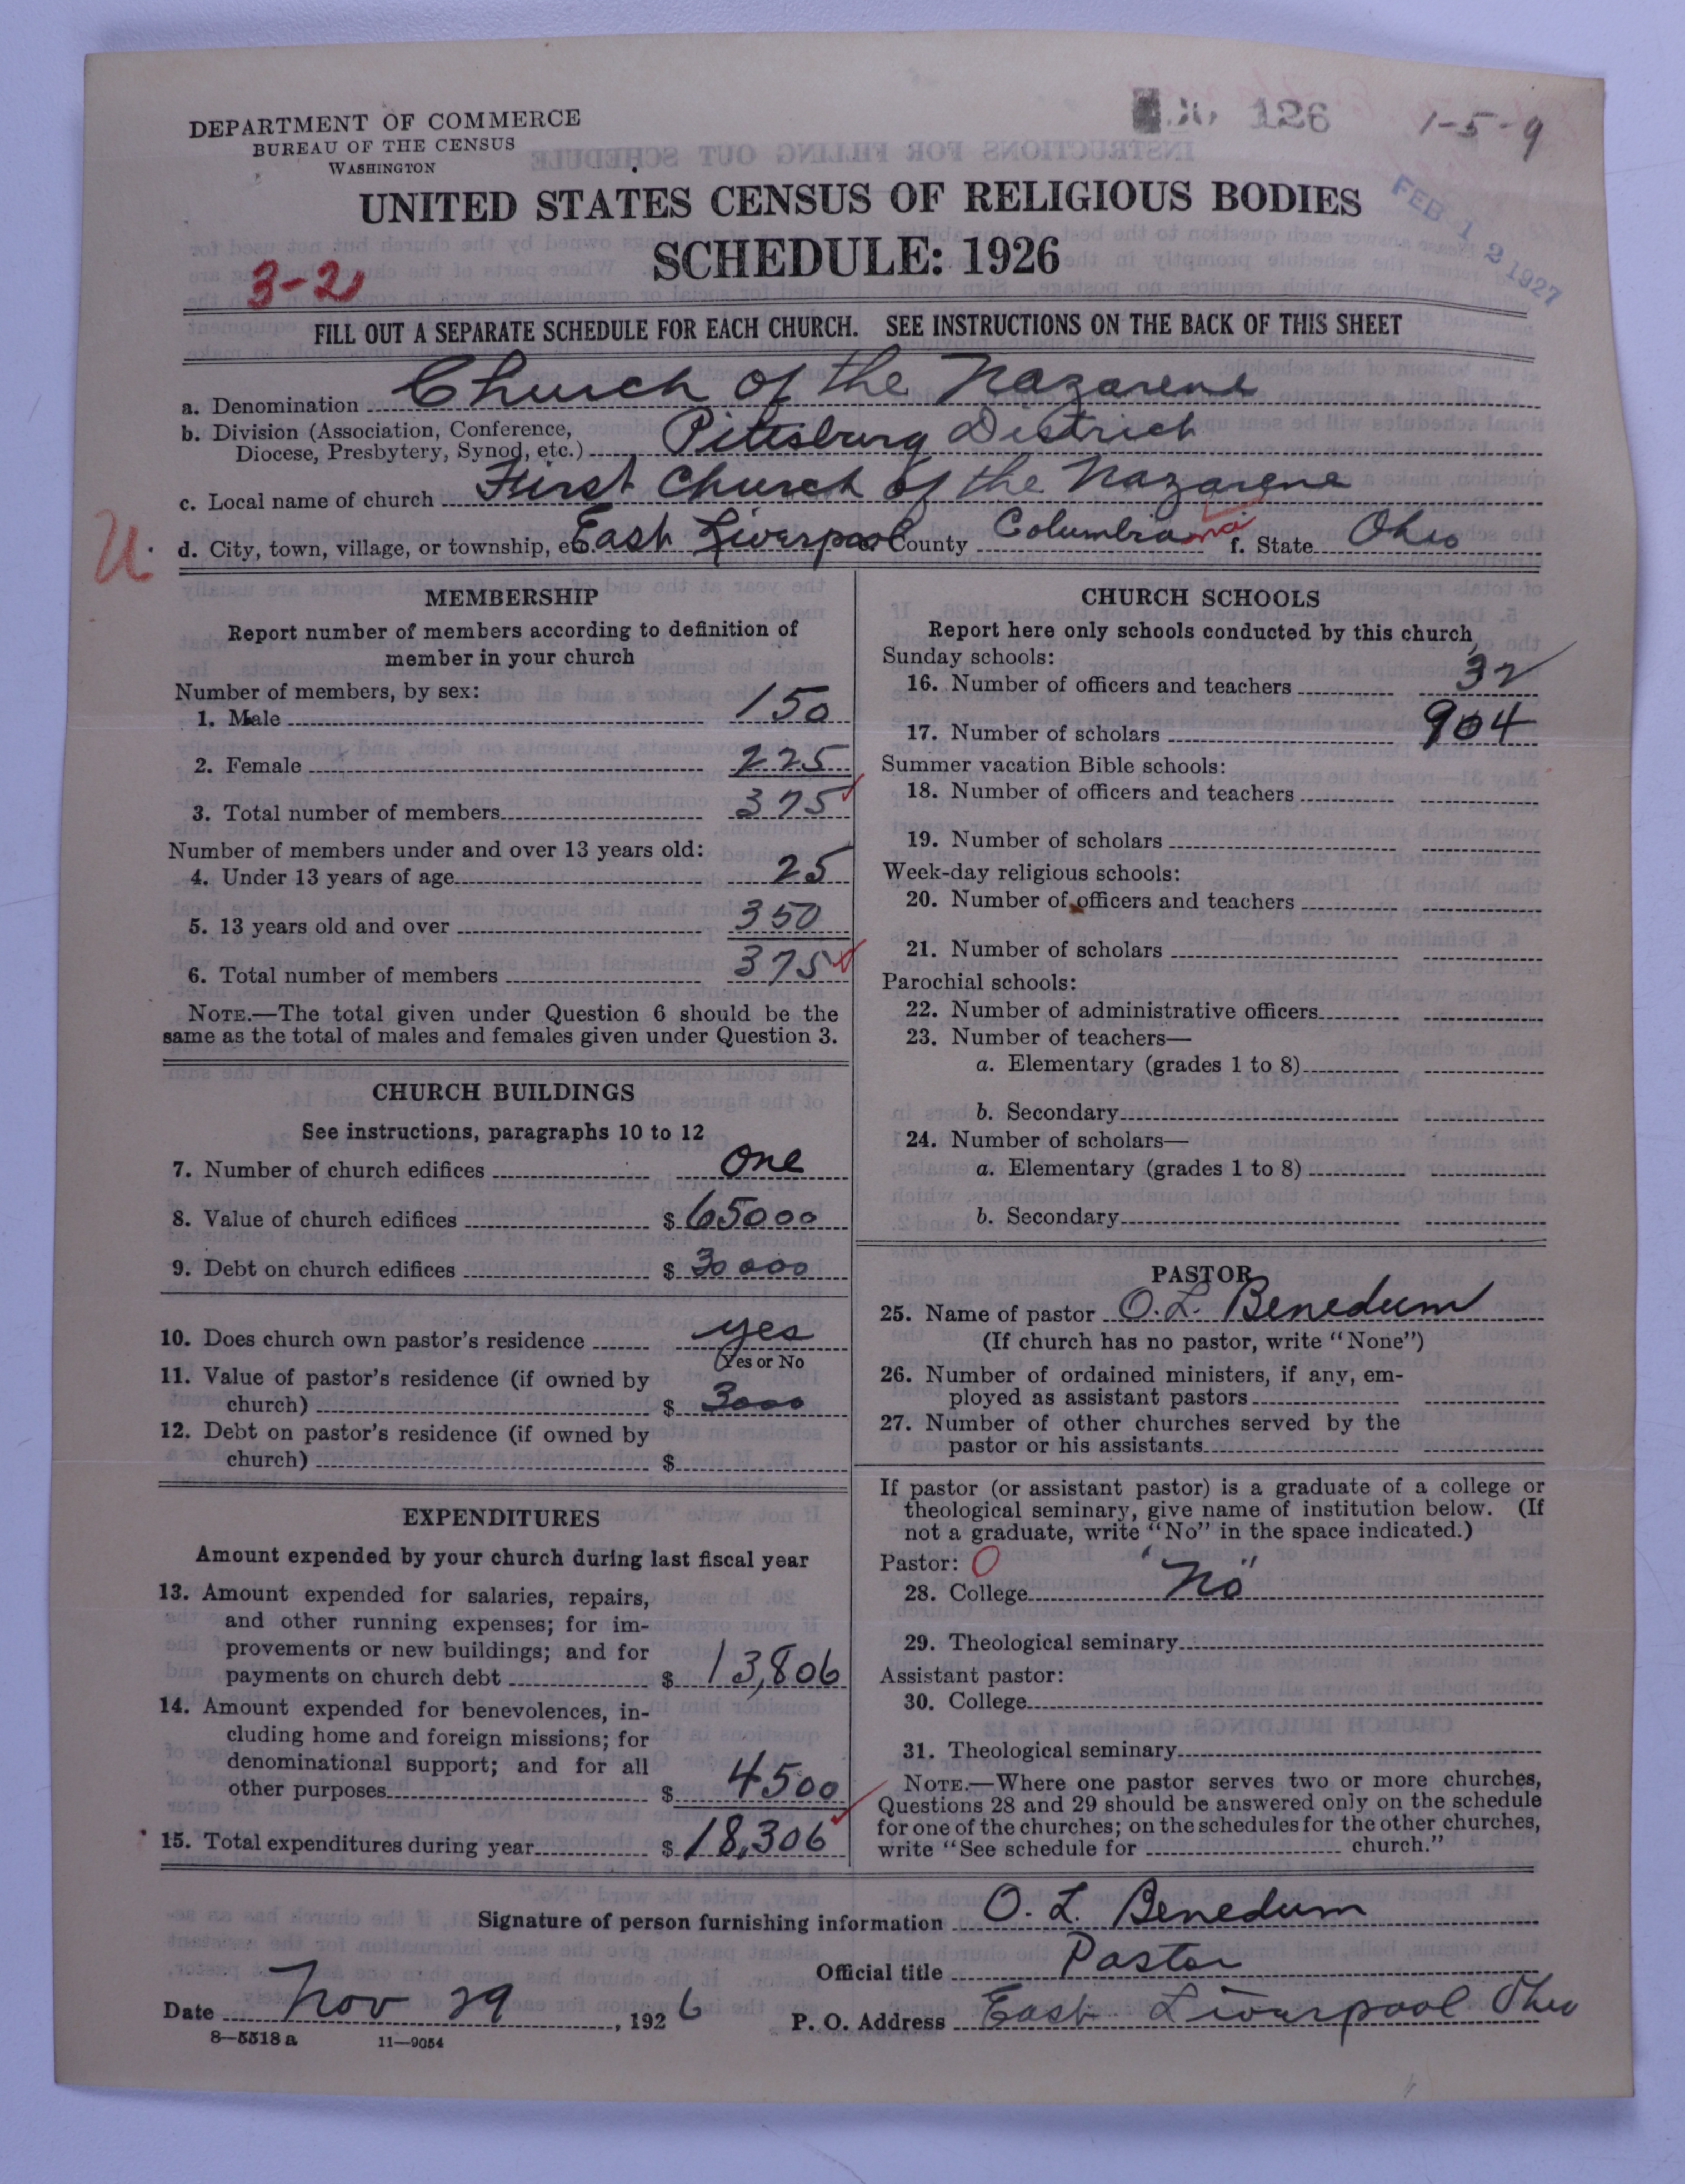 DEPARTMENT OF COMMERCE
BUREAU OF THE CENSUS
WASHINGTON
126
1-5-9
FEB 12 1927
UNITED STATES CENSUS OF RELIGIOUS BODIES
SCHEDULE: 1926
3-2
FILL OUT A SEPARATE SCHEDULE FOR EACH CHURCH. SEE INSTRUCTIONS ON THE BACK OF THIS SHEET
a. Denomination Church of the Nazarene
b. Division (Association, Conference,
Diocese, Presbytery, Synod, etc.) Pittsburg District
c. Local name of church First Church of the Nazarene
U.
d. City, town, village, or township, etc. East Liverpool e. County Columbiana f. State Ohio
MEMBERSHIP
Report number of members according to definition of
member in your church
Number of members, by sex:
1. Male 150
2. Female 225
3. Total number of members 375
Number of members under and over 13 years old:
4. Under 13 years of age 25
5. 13 years old and over 350
6. Total number of members 375
NOTE.—The total given under Question 6 should be the
same as the total of males and females given under Question 3.
CHURCH BUILDINGS
See instructions, paragraphs 10 to 12
7. Number of church edifices one
8. Value of church edifices $ 65000
9. Debt on church edifices $ 30000
10. Does church own pastor's residence yes
(Yes or No
11. Value of pastor's residence (if owned by
church) $ 3000
12. Debt on pastor's residence (if owned by
church) $
EXPENDITURES
Amount expended by your church during last fiscal year
13. Amount expended for salaries, repairs,
and other running expenses; for im-
provements or new buildings; and for
payments on church debt $ 13,806
14. Amount expended for benevolences, in-
cluding home and foreign missions; for
denominational support; and for all
other purposes $ 4500
15. Total expenditures during year $ 18,306
CHURCH SCHOOLS
Report here only schools conducted by this church
Sunday schools:
16. Number of officers and teachers 32
17. Number of scholars 904
Summer vacation Bible schools:
18. Number of officers and teachers
19. Number of scholars
Week-day religious schools:
20. Number of officers and teachers
21. Number of scholars
Parochial schools:
22. Number of administrative officers
23. Number of teachers—
a. Elementary (grades 1 to 8)
b. Secondary
24. Number of scholars—
a. Elementary (grades 1 to 8)
b. Secondary
PASTOR
25. Name of pastor O. L. Benedum
(If church has no pastor, write "None")
26. Number of ordained ministers, if any, em-
ployed as assistant pastors
27. Number of other churches served by the
pastor or his assistants
If pastor (or assistant pastor) is a graduate of a college or
theological seminary, give name of institution below. (If
not a graduate, write "No" in the space indicated.)
Pastor: O
28. College "No"
29. Theological seminary
Assistant pastor:
30. College
31. Theological seminary
NOTE.—Where one pastor serves two or more churches,
Questions 28 and 29 should be answered only on the schedule
for one of the churches; on the schedules for the other churches,
write "See schedule for church."
Signature of person furnishing information O. L. Benedum
Official title Pastor
Date Nov 29, 1926 P. O. Address East Liverpool Ohio
8—5518 a 11—9054